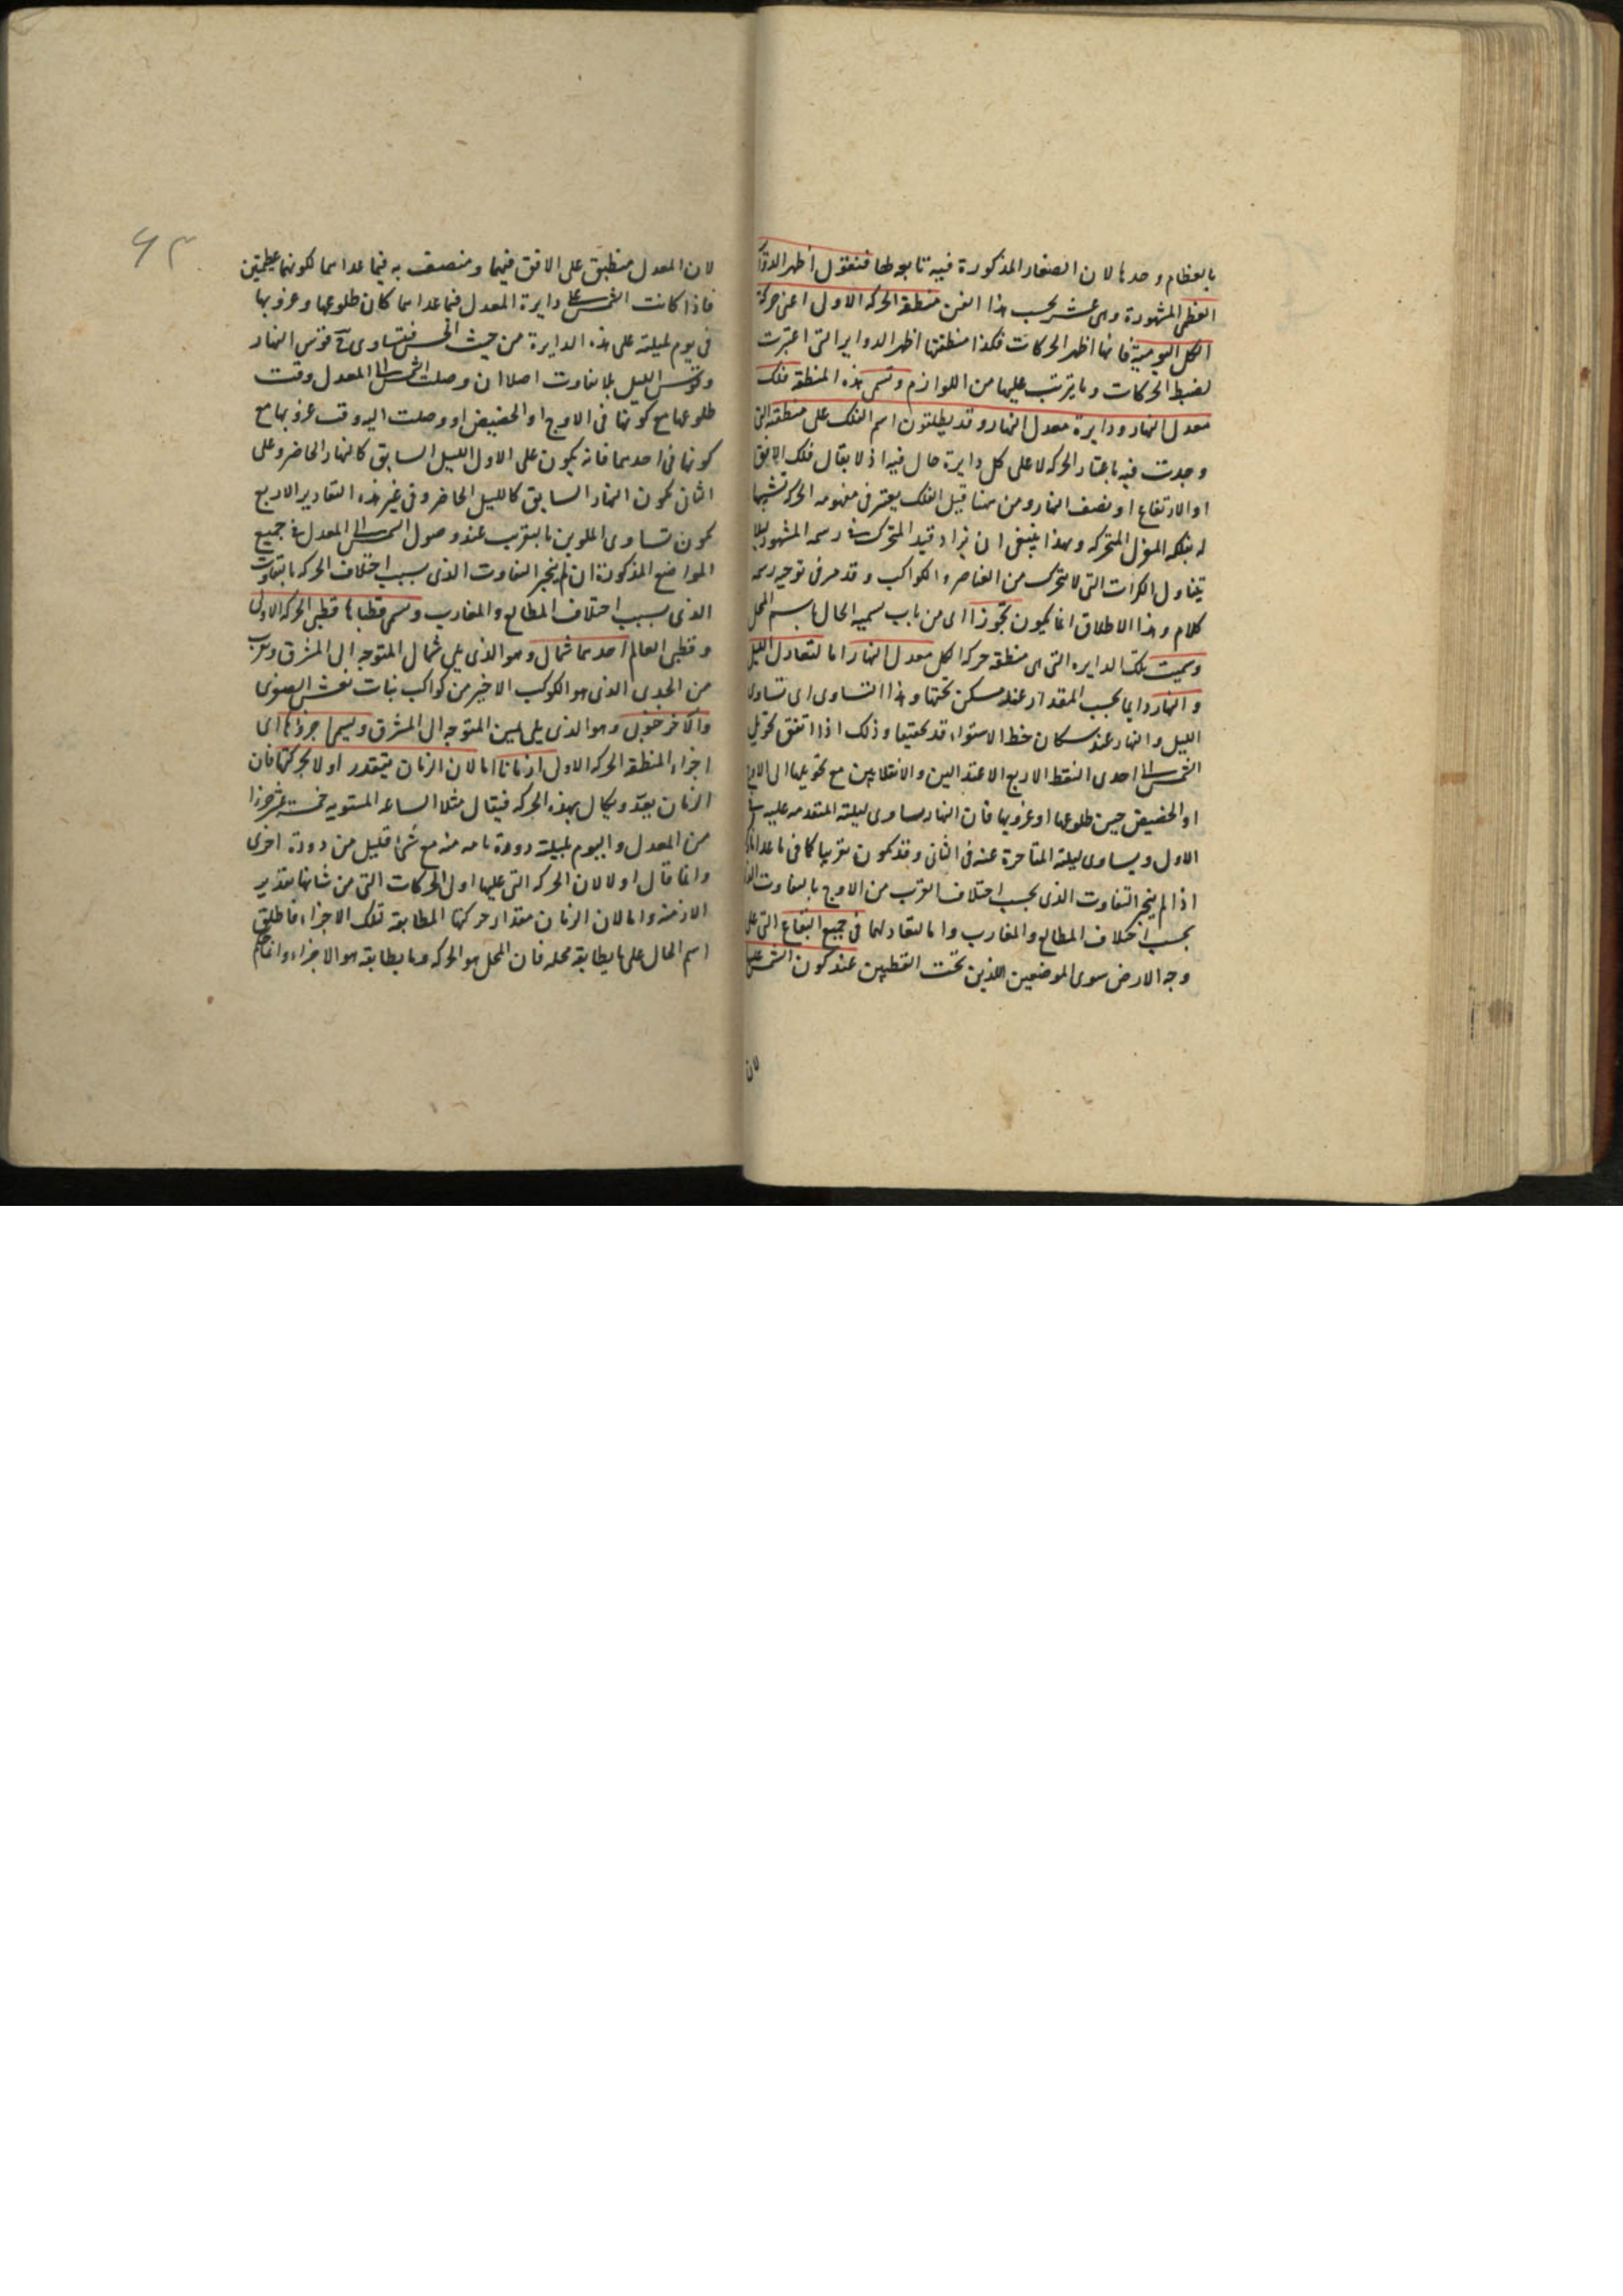 بالعظام وحدها لان الصغار المذكورة فيه تابعة لها فنقول اظهر الدوائر
العظمى المشهورة وهى عشر بحسب هذا الفن منطقة الحركه الاولى اعنى حركة
الكل اليومية فانها اظهر الحركات فكذا منطقتها اظهر الدواير التى اعتبرت
لضبط الحركات وما يترتب عليها من اللوازم وتسمى هذه المنطقه فلك
معدل النهار ودايرة معدل النهار وقد يطلقون اسم الفلك على منطقة التى
وجدت فيه باعتبار الحركه لا على كل دايرة حال فيه اذ لا يقال فلك الافق
او الارتفاع او نصف النهار ومن هنا قيل الفلك يعتبر فى مفهومه الحركه تشبيها
له بفلكه المغزل المتحركه وبهذا ينبغى ان يزاد قيد المتحرك فى رسمه المشهور لئلا
يتناول الكرات التى لا تتحرك من العناصر والكواكب وقد مر فى توجيه رسمه
كلام وهذا الاطلاق انما يكون تجوزا اى من باب تسميه الحال باسم المحل
وسميت تلك الدايره التى هى منطقه حركه الكل معدل النهار اما لتعادل الليل
والنهار دايما بحسب المقدار عند مسكن تحتها وهذا التساوى اى تساوى
الليل والنهار عند سكان خط الاستواء قد يكون حقيقيا وذلك اذا اتفق تحويل
الشمس الى احدى النقط الاربع الاعتدالين والانقلابين مع تحويلها الى الاوج
او الحضيض حين طلوعها او غروبها فان النهار يساوى ليلته المتقدمه عليه فى
الاول ويساوى ليلته المتاخرة عنه فى الثانى وقد يكون تقريبا كما فى ما عدا ذلك
اذا لم ينجبر التفاوت الذى بحسب اختلاف القرب من الاوج بالتفاوت الذى
بحسب اختلاف المطالع والمغارب واما لتعادلهما فى جميع البقاع التى على
وجه الارض سوى الموضعين اللذين تحت القطبين عند كون الشمس عليها
لان
٦٣
لان المعدل منطبق على الافق فيهما ومنصف به فيما عداهما لكونهما عظيمتين
فاذا كانت الشمس على دايرة المعدل فيما عداهما كان طلوعها وغروبها
فى يوم بليلته على هذه الدايرة من حيث الحس فيتساوى قوس النهار
وقوس الليل بلا تفاوت اصلا ان وصلت الشمس الى المعدل وقت
طلوعها مع كونها فى الاوج او الحضيض او وصلت اليه وقت غروبها مع
كونها فى احدهما فانه يكون على الاول الليل السابق كالنهار الحاضر وعلى
الثانى يكون النهار السابق كالليل الحاضر وفى غير هذه التقادير الاربع
يكون تساوى الملوين بالتقريب عند وصول الشمس الى المعدل فى جميع
المواضع المذكورة ان لم ينجبر التفاوت الذى بسبب اختلاف الحركه بالتفاوت
الذى بسبب اختلاف المطالع والمغارب وتسمى قطباها قطبى الحركه الاولى
وقطبى العالم احدهما شمالى وهو الذى يلى شمال المتوجه الى المشرق وبقرب
من الجدى الذى هو الكوكب الاخير من كواكب بنات نعش الصغرى
والآخر جنوبى وهو الذى يلى يمين المتوجه الى المشرق ويسمى اجزاؤها اى
اجزاء المنطقه الحركه الاولى ازمانا اما لان الزمان يتقدر اولا بحركتها فان
الزمان يعد ويكال بهذه الحركه فيقال مثلا الساعه المستويه خمسة عشر جزءا
من المعدل واليوم بليلته دورة تامه منه مع شئ قليل من دورة اخرى
وانما قال اولا لان الحركه التى عليها اولى الحركات التى من شانها تقدير
الازمنه واما لان الزمان مقدار حركتها المطابقه تلك الاجزاء فاطلق
اسم الحال على ما يطابق محله فان المحل هو الحركه وما يطابقه هو الاجزاء وانما